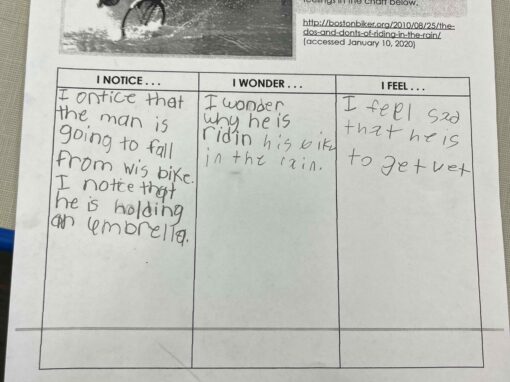 feelings in the chart below.
http://bostonbiker.org/2010/08/25/the-
dos-and-donts-of-riding-in-the-rain/
(accessed January 10, 2020)
I NOTICE . . .
I ontice that
the man is
going to fall
from wis bike.
I notce that
he is holding
an umbrella.
I WONDER . . .
I wonder
why he is
ridin his bike
in the rain.
I FEEL . . .
I feel sad
that he is
to get wet